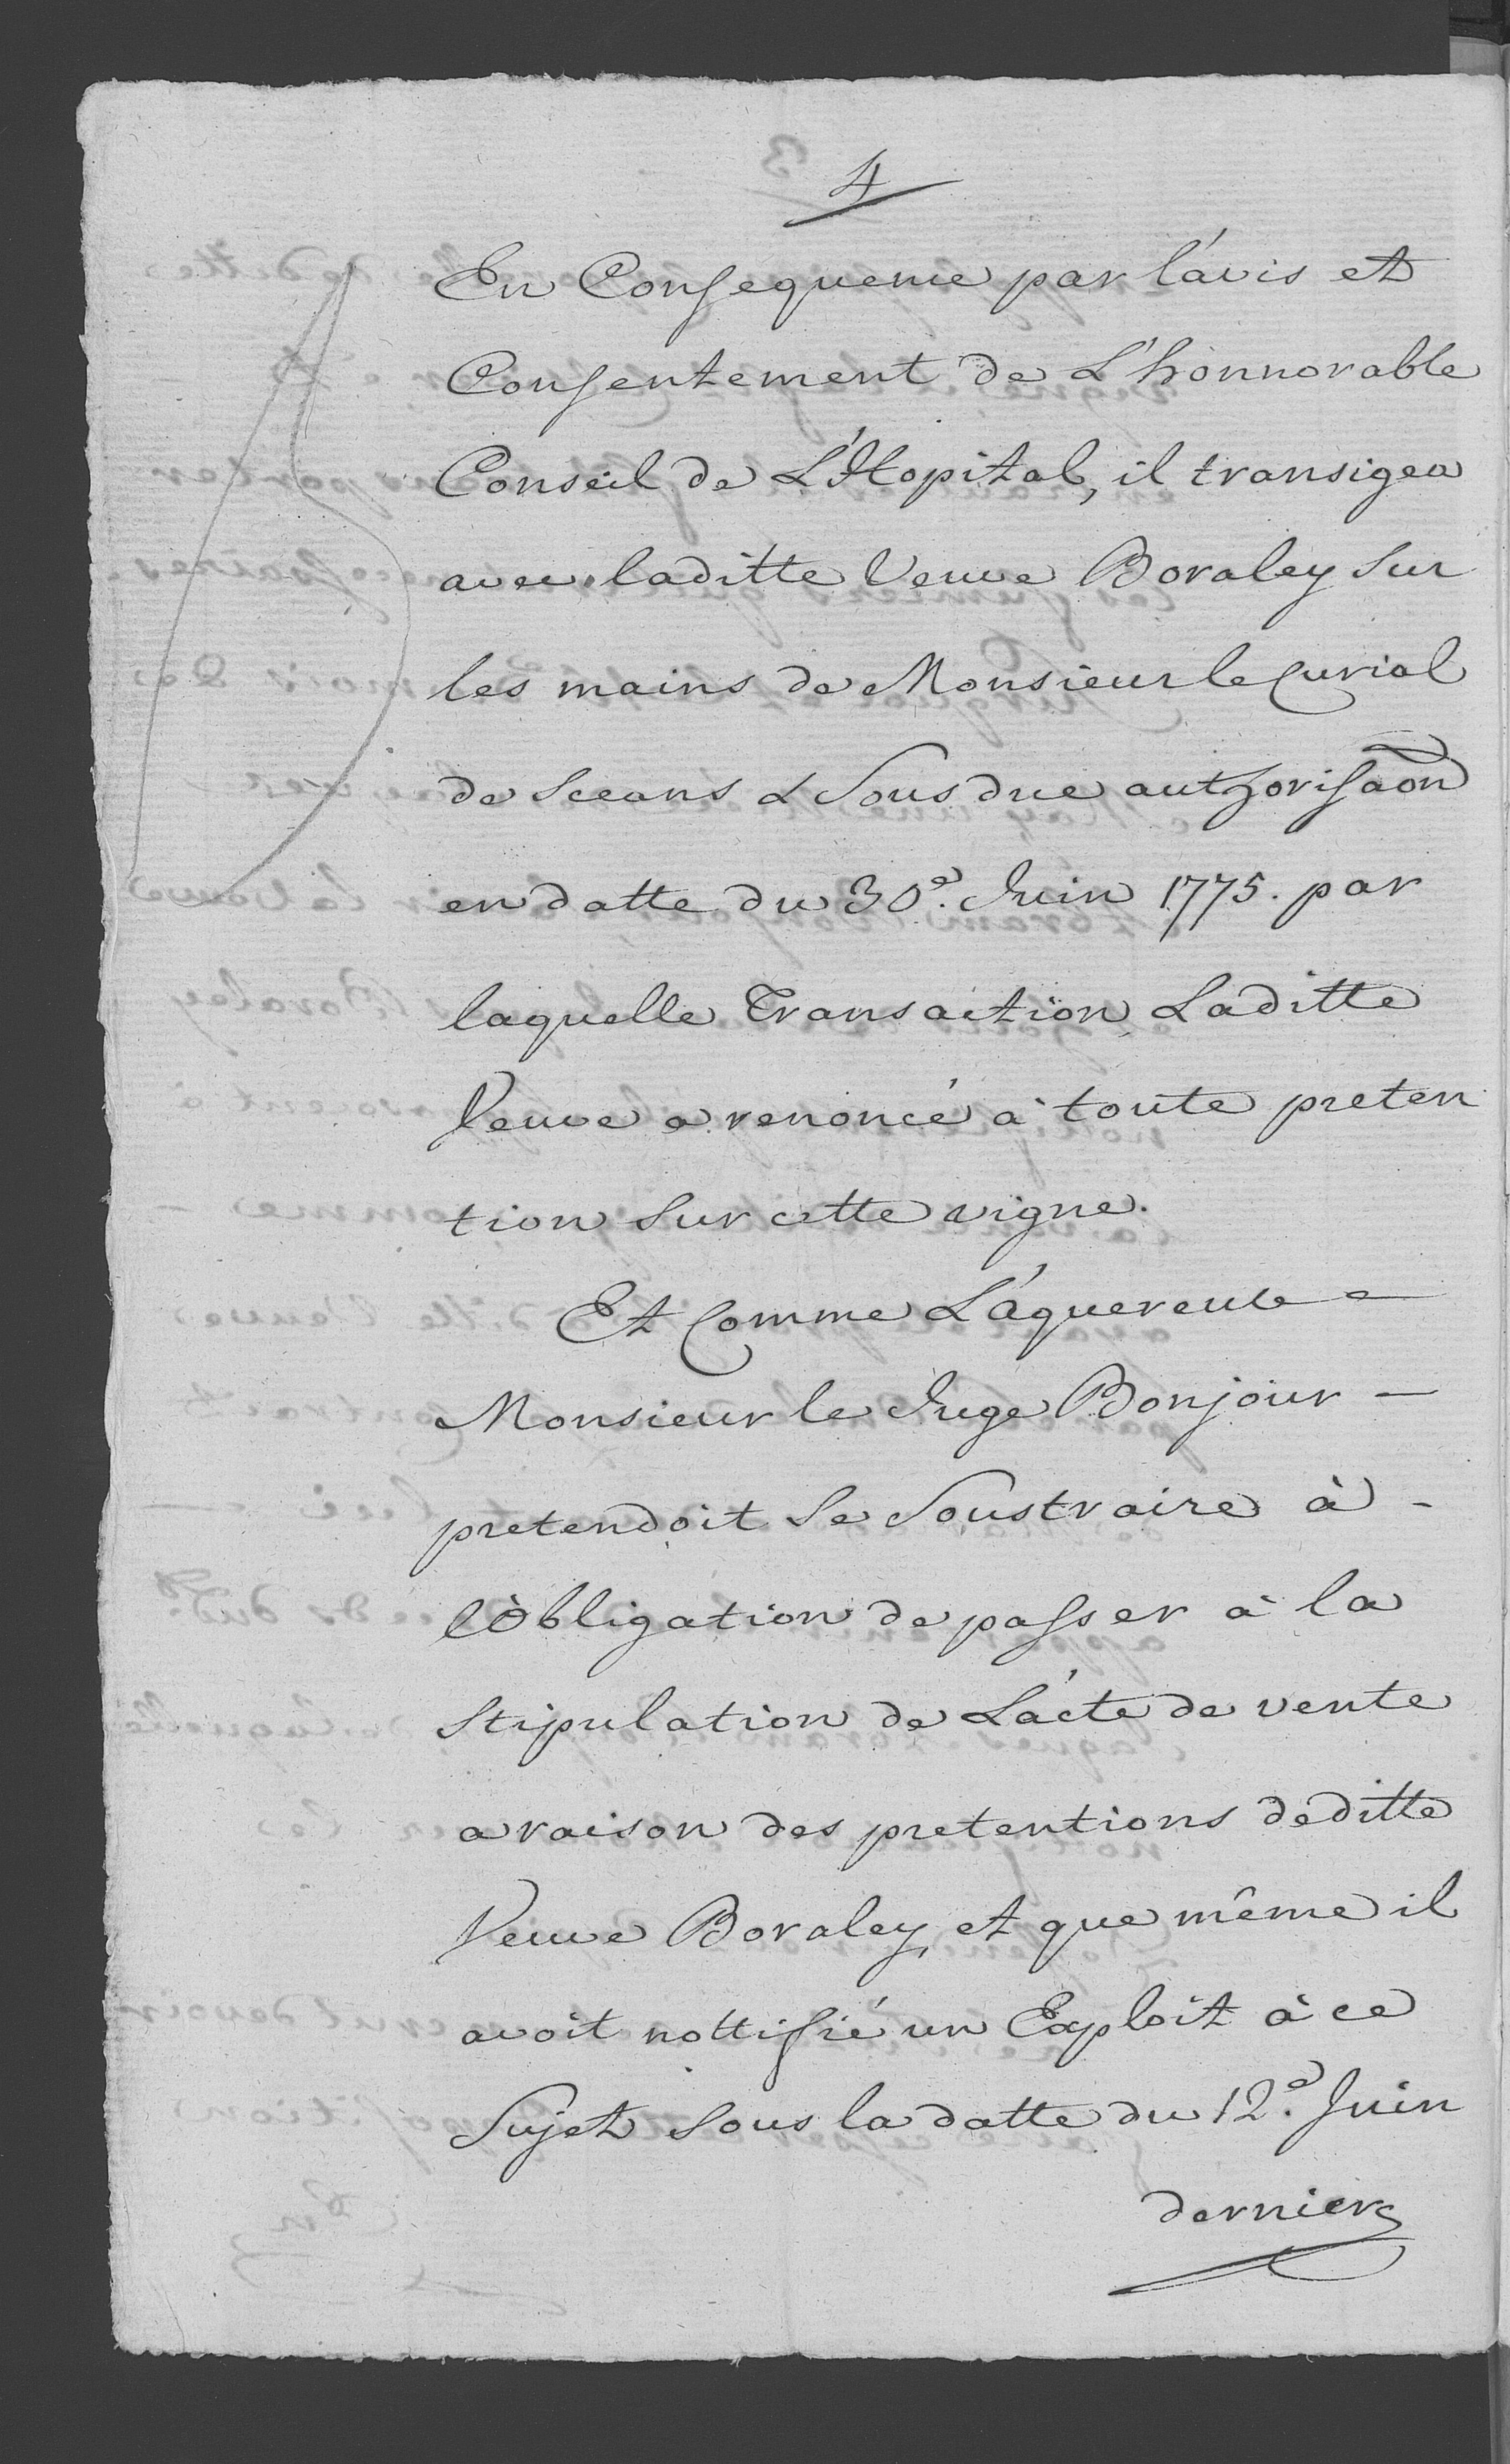 4
En Consequence par l'avis et
Consentement de L'honnorable
Conseil de L'Hopital, il transigea
avec laditte Veuve Bovaley sur
les mains de Monsieur le Curial
de Sceans & Sous due authorisaõn
en datte du 30e. Juin 1775. par
laquelle Transaction Laditte
Veuve a renoncé à toute preten
tion sur cette vigne.
Et Comme L'aquereur
Monsieur le Juge Bonjour -
pretendoit se Soustraire à -
l'obligation de passer à la
stipulation de L'acte de vente
a raison des pretentions deditte
Veuve Bovaley, et que même il
avoit nottifié un Exploit à ce
Sujet sous la datte du 12e. Juin
dernier